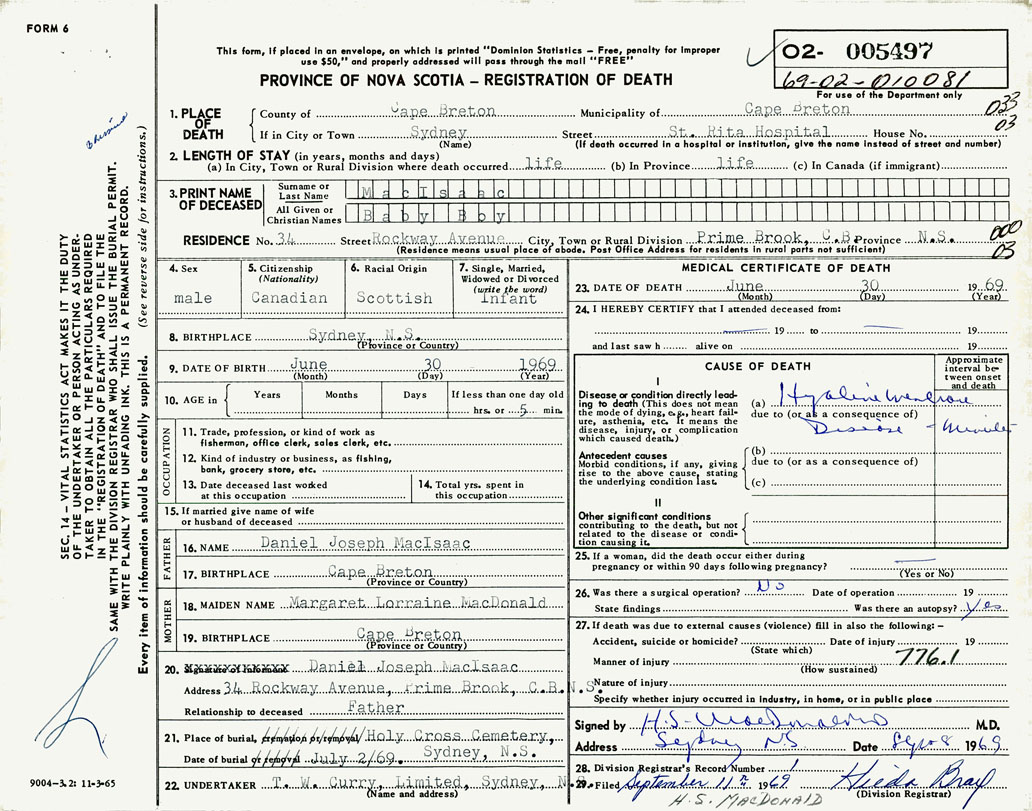 FORM 6
This form, if placed in an envelope, on which is printed "Dominion Statistics - Free, penalty for improper
use $50," and properly addressed will pass through the mail "FREE"
PROVINCE OF NOVA SCOTIA - REGISTRATION OF DEATH
02- 005497
69-02-010081
For use of the Department only
033
03
1. PLACE OF DEATH
County of Cape Breton Municipality of Cape Breton
If in City or Town Sydney Street St. Rita Hospital House No.
(Name) (If death occurred in a hospital or institution, give the name instead of street and number)
2. LENGTH OF STAY (in years, months and days)
(a) In City, Town or Rural Division where death occurred life (b) In Province life (c) In Canada (if immigrant)
3. PRINT NAME OF DECEASED
Surname or Last Name MacIsaac
All Given or Christian Names Baby Bby
RESIDENCE No. 34 Street Rockway Avenue City, Town or Rural Division Prime Brook, C.B. Province N.S.
(Residence means usual place of abode. Post Office Address for residents in rural parts not sufficient)
000
03
4. Sex
male
5. Citizenship (Nationality)
Canadian
6. Racial Origin
Scottish
7. Single, Married, Widowed or Divorced (write the word)
Infant
8. BIRTHPLACE Sydney, N.S.
(Province or Country)
9. DATE OF BIRTH June 30 1969
(Month) (Day) (Year)
10. AGE in Years Months Days If less than one day old
hrs. or 5 min.
OCCUPATION
11. Trade, profession, or kind of work as
fisherman, office clerk, sales clerk, etc.
12. Kind of industry or business, as fishing,
bank, grocery store, etc.
13. Date deceased last worked
at this occupation
14. Total yrs. spent in
this occupation
15. If married give name of wife
or husband of deceased
FATHER
16. NAME Daniel Joseph MacIsaac
17. BIRTHPLACE Cape Breton
(Province or Country)
MOTHER
18. MAIDEN NAME Margaret Lorraine MacDonald
19. BIRTHPLACE Cape Breton
(Province or Country)
20. Signature of informant Daniel Joseph MacIsaac
Address 34 Rockway Avenue, Prime Brook, C.B.N.S.
Relationship to deceased Father
21. Place of burial, cremation or removal Holy Cross Cemetery,
Date of burial or removal July 2/69. Sydney, N.S.
22. UNDERTAKER T. W. Curry, Limited, Sydney, N.S.
(Name and address)
MEDICAL CERTIFICATE OF DEATH
23. DATE OF DEATH June 30 1969
(Month) (Day) (Year)
24. I HEREBY CERTIFY that I attended deceased from:
19 to 19
and last saw h alive on 19
CAUSE OF DEATH
Approximate interval between onset and death
I
Disease or condition directly leading to death (This does not mean the mode of dying, e.g., heart failure, asthenia, etc. It means the disease, injury, or complication which caused death.)
(a) Hyaline Membrane
due to (or as a consequence of)
Disease - Minutes
Antecedent causes
Morbid conditions, if any, giving rise to the above cause, stating the underlying condition last.
(b)
due to (or as a consequence of)
(c)
II
Other significant conditions
contributing to the death, but not related to the disease or condition causing it.
25. If a woman, did the death occur either during
pregnancy or within 90 days following pregnancy?
(Yes or No)
26. Was there a surgical operation? No Date of operation 19
State findings Was there an autopsy? Yes
27. If death was due to external causes (violence) fill in also the following:-
Accident, suicide or homicide? Date of injury 19
(State which)
Manner of injury 776.1
(How sustained)
Nature of injury
Specify whether injury occurred in industry, in home, or in public place
Signed by H.S. MacDonald M.D.
Address Sydney NS Date Sept 8 1969
28. Division Registrar's Record Number
29. Filed September 1969 Hilda Bray
(Division Registrar)
H.S. MACDONALD
SEC. 14 - VITAL STATISTICS ACT MAKES IT THE DUTY
OF THE UNDERTAKER OR PERSON ACTING AS UNDER-
TAKER TO OBTAIN ALL THE PARTICULARS REQUIRED
IN THE "REGISTRATION OF DEATH" AND TO FILE THE
SAME WITH THE DIVISION REGISTRAR WHO SHALL ISSUE THE BURIAL PERMIT.
WRITE PLAINLY WITH UNFADING INK. THIS IS A PERMANENT RECORD.
Every item of information should be carefully supplied. (See reverse side for instructions.)
9004-3.2: 11-3-65